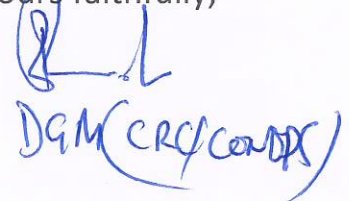 ours faithfully,
DGM(CRC/CONOPS)